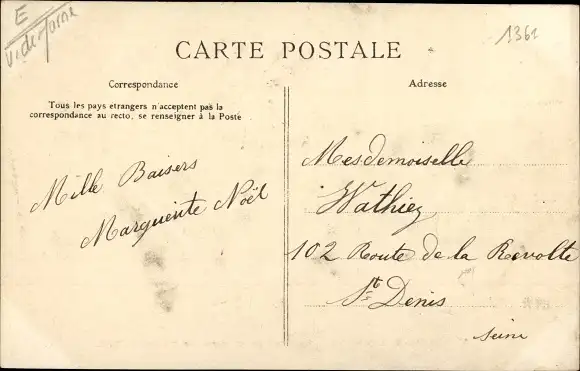 E
V. de Marne
1361
CARTE POSTALE
Correspondance
Tous les pays etrangers n'acceptent pas la
correspondance au recto, se renseigner à la Poste
Mille Baisers
Marguerite Noël
Adresse
Mesdemoiselle
Wathiez
102 Route de la Revolte
St Denis
Seine